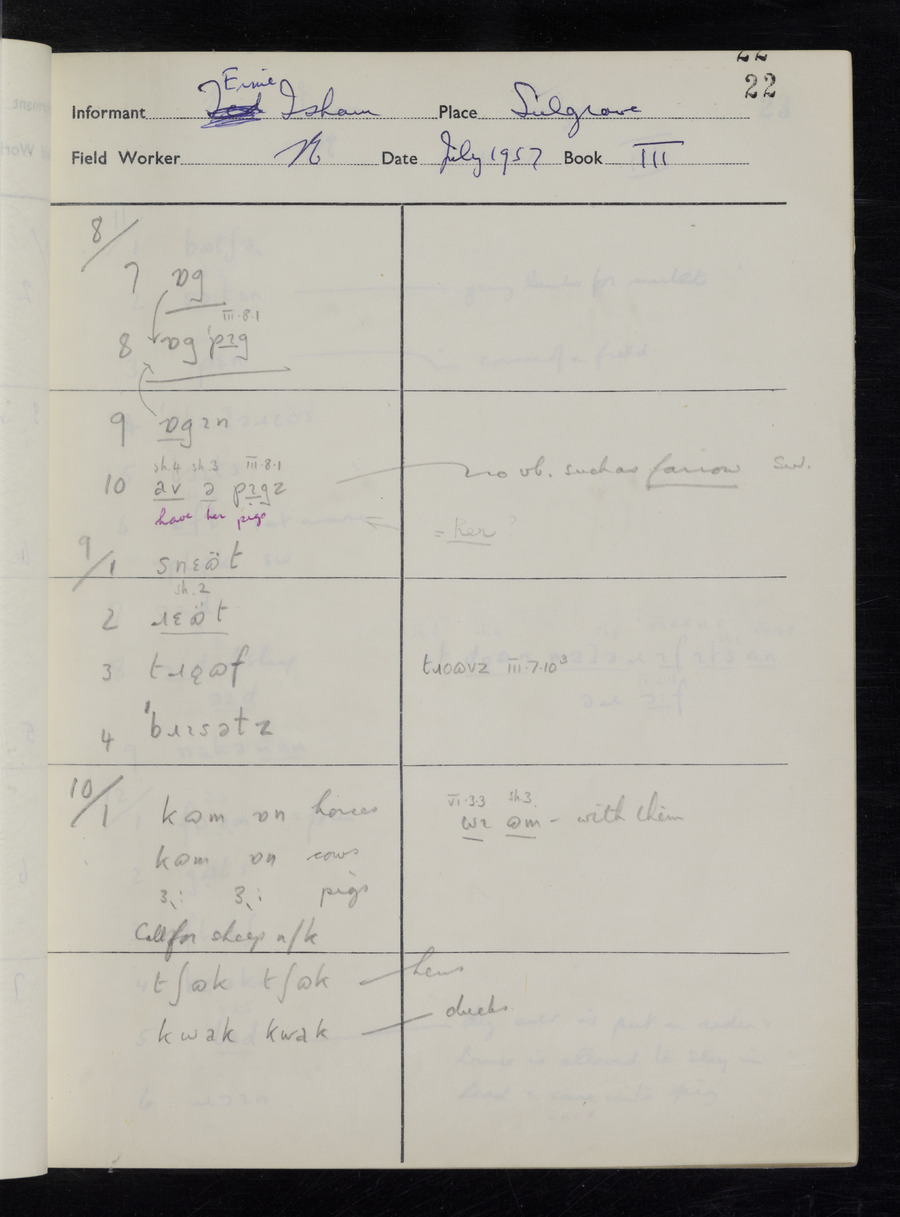 22
Ernie
Informant Isham Place Sulgrave
Field Worker Date July 1957 Book III
8/
7 ɒg
III.8.1
8 ɒg pɪg
9 ɒgɪn
sh.4 sh.3 III.8.1
10 av ə pɪgz no vb. such as farrow
have her pigs
= her?
9/1 snɛɷ̈t
sh.2
2 ɹɛɷ̈t
3 tɹɒɷf tɹoɷvz III.7.10³
4 ˈbɹɪsətz
10/1 kɷm ɒn horses
VI.3.3 sh.3
wɪ ɷm - with them
kɷm ɒn cows
ʒ: ʒ: pigs
Call for sheep n/k
tʃɷk tʃɷk hens
kwak kwak ducks